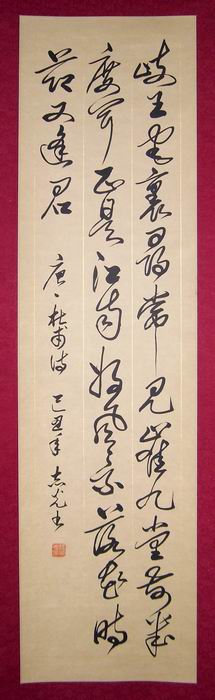 岐王宅裏尋常見崔九堂前幾
度聞正是江南好風景落花時
節又逢君 唐、杜甫詩 己丑年志光書